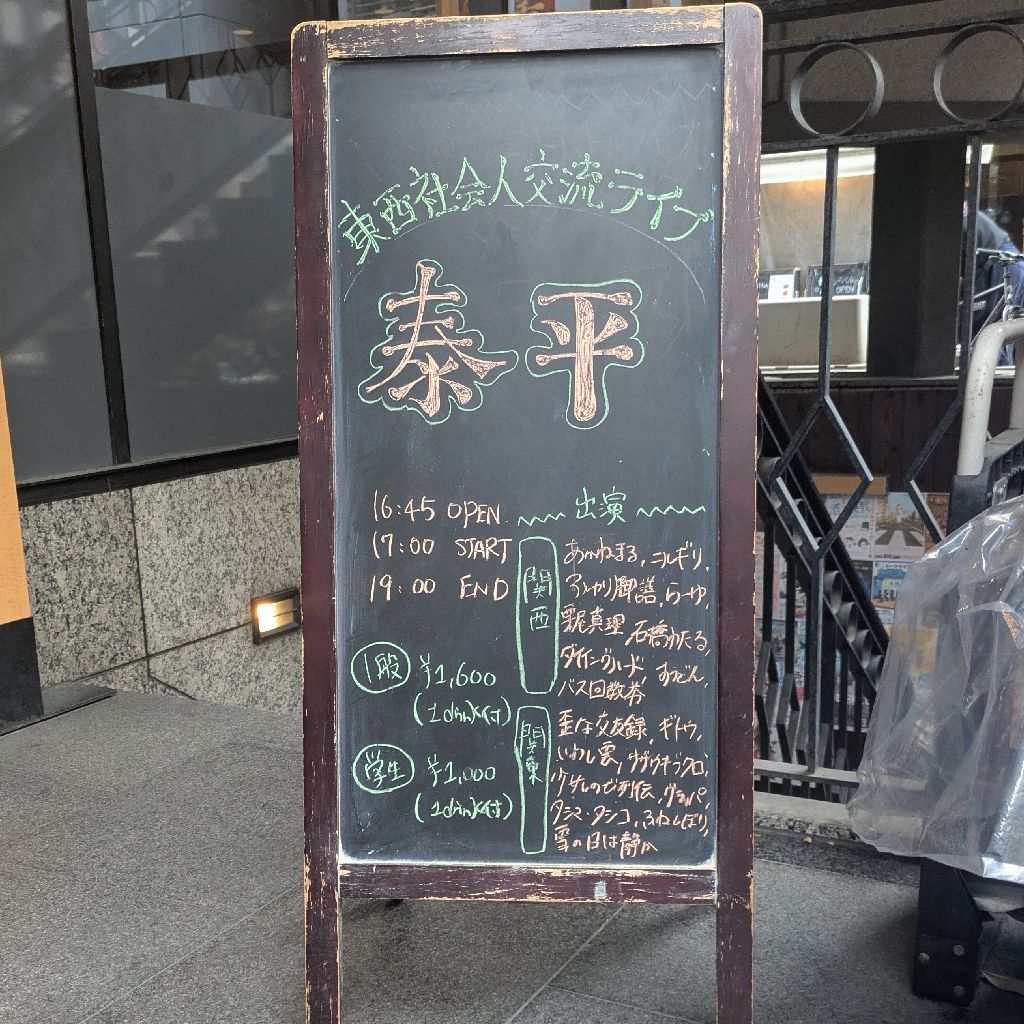 東西社会人交流ライブ
泰平
16:45 OPEN
17:00 START
19:00 END
一般 ¥1,600
(1drink付)
学生 ¥1,000
(1drink付)
出演
関西
あかねまる、ニルギリ、
らーゆ、
真理 石橋わたる、
ダイイングハード、すどん、
バス回数券
関東
歪な交友録、ギトウ、
いわし雲、サザウキブクロ、
列伝、グラッパ、
タシマ・タシコ、ふねしぼり、
雪の日は静か
OPEN